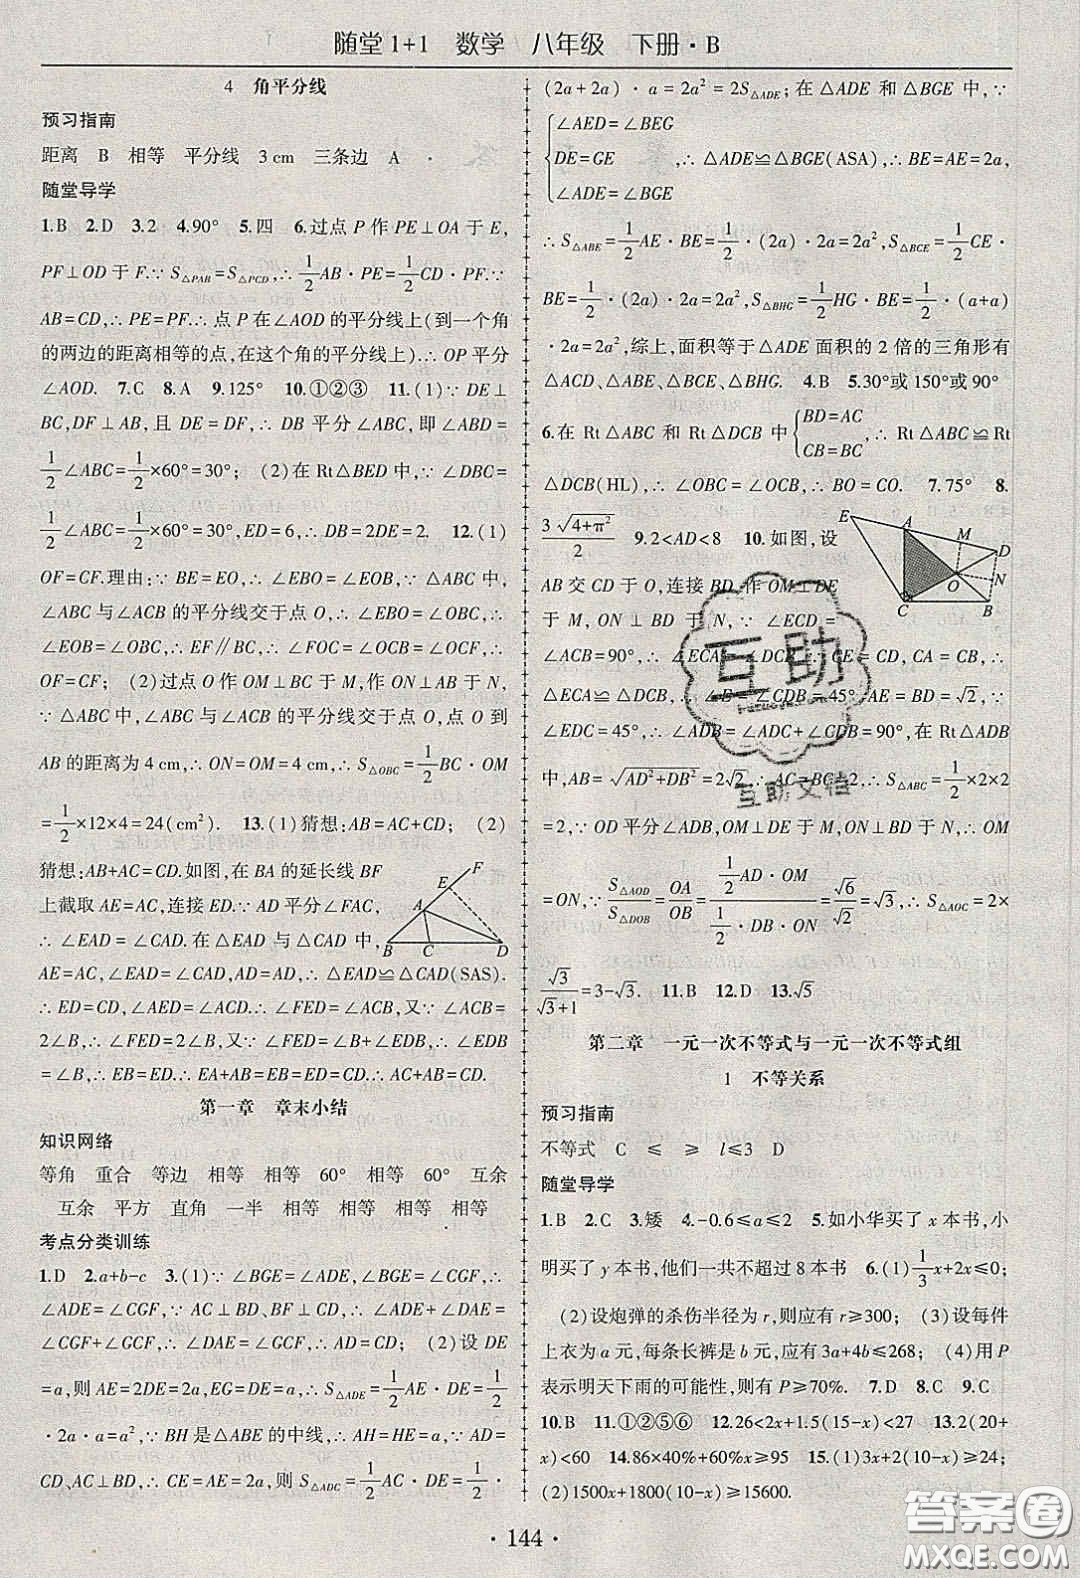 随堂1+1 数学 八年级 下册·B
4 角平分线
预习指南
距离 B 相等 平分线 3 cm 三条边 A
随堂导学
1.B 2.D 3.2 4.90° 5.四 6.过点 P 作 PE⊥OA 于 E,
PF⊥OD 于 F.∵ S△PAB=S△PCD,∴ 1/2 AB·PE=1/2 CD·PF.∵
AB=CD,∴ PE=PF.∴ 点 P 在∠AOD 的平分线上(到一个角
的两边的距离相等的点,在这个角的平分线上).∴ OP 平分
∠AOD. 7.C 8.A 9.125° 10.①②③ 11.(1)∵ DE⊥
BC,DF⊥AB,且 DE=DF,∴ DB 平分∠ABC,即∠ABD=
1/2∠ABC=1/2×60°=30°; (2)在 Rt△BED 中,∵ ∠DBC=
1/2∠ABC=1/2×60°=30°,ED=6,∴ DB=2DE=2. 12.(1)
OF=CF.理由:∵ BE=EO,∴ ∠EBO=∠EOB.∵ △ABC 中,
∠ABC 与∠ACB 的平分线交于点 O,∴ ∠EBO=∠OBC,∴
∠EOB=∠OBC,∴ EF∥BC,∴ ∠FOC=∠OCB=∠OCF,∴
OF=CF; (2)过点 O 作 OM⊥BC 于 M,作 ON⊥AB 于 N,
∵ △ABC 中,∠ABC 与∠ACB 的平分线交于点 O,点 O 到
AB 的距离为 4 cm,∴ ON=OM=4 cm,∴ S△OBC=1/2 BC·OM
=1/2×12×4=24(cm²). 13.(1)猜想:AB=AC+CD; (2)
猜想:AB+AC=CD.如图,在 BA 的延长线 BF
上截取 AE=AC,连接 ED.∵ AD 平分∠FAC,
∴ ∠EAD=∠CAD.在△EAD 与△CAD 中,
AE=AC,∠EAD=∠CAD,AD=AD,∴ △EAD≌△CAD(SAS).
∴ ED=CD,∠AED=∠ACD.∴ ∠FED=∠ACB,又∵ ∠ACB=
2∠B,∴ ∠FED=2∠B,又∵ ∠FED=∠B+∠EDB,∴ ∠EDB
=∠B,∴ EB=ED.∴ EA+AB=EB=ED=CD.∴ AC+AB=CD.
F
E
A
B
C
D
第一章 章末小结
知识网络
等角 重合 等边 相等 相等 60° 相等 60° 互余
互余 平方 直角 一半 相等 相等 相等 相等
考点分类训练
1.D 2.a+b-c 3.(1)∵ ∠BGE=∠ADE,∠BGE=∠CGF,∴
∠ADE=∠CGF,∵ AC⊥BD、BF⊥CD,∴ ∠ADE+∠DAE=
∠CGF+∠GCF,∴ ∠DAE=∠GCF,∴ AD=CD; (2)设 DE
=a,则 AE=2DE=2a,EG=DE=a,∴ S△ADE=1/2 AE·DE=1/2
·2a·a=a²,∵ BH 是△ABE 的中线,∴ AH=HE=a,∵ AD=
CD、AC⊥BD,∴ CE=AE=2a,则 S△ADC=1/2 AC·DE=1/2·
(2a+2a)·a=2a²=2S△ADE;在△ADE 和△BGE 中,∵
{∠AED=∠BEG
DE=GE ,∴ △ADE≌△BGE(ASA),∴ BE=AE=2a,
∠ADE=∠BGE
∴ S△ABE=1/2 AE·BE=1/2·(2a)·2a=2a², S△BCE=1/2 CE·
BE=1/2·(2a)·2a=2a², S△BHG=1/2 HG·BE=1/2·(a+a)
·2a=2a²,综上,面积等于△ADE 面积的 2 倍的三角形有
△ACD、△ABE、△BCE、△BHG. 4.B 5.30°或 150°或 90°
6.在 Rt△ABC 和 Rt△DCB 中{BD=AC
CB=BC,∴ Rt△ABC≌Rt
△DCB(HL),∴ ∠OBC=∠OCB,∴ BO=CO. 7.75° 8.
3√(4+π²)/2 9.2<AD<8 10.如图,设
AB 交 CD 于 O,连接 BD,作 OM⊥DE
于 M,ON⊥BD 于 N,∵ ∠ECD=
∠ACB=90°,∴ ∠ECA=∠DCB,∵ CE=CD,CA=CB,∴
△ECA≌△DCB,∴ ∠E=∠CDB=45°,AE=BD=√2,∵
∠EDC=45°,∴ ∠ADB=∠ADC+∠CDB=90°,在 Rt△ADB
中,AB=√(AD²+DB²)=2√2,∴ AC=BC=2,∴ S△ABC=1/2×2×2
=2,∵ OD 平分∠ADB,OM⊥DE 于 M,ON⊥BD 于 N,∴ OM
=ON,∵ S△AOD/S△DOB=OA/OB=(1/2 AD·OM)/(1/2·DB·ON)=√6/√2=√3,∴ S△AOC=2×
√3/(√3+1)=3-√3. 11.B 12.D 13.√5
E
A
M
D
O
N
C
B
第二章 一元一次不等式与一元一次不等式组
1 不等关系
预习指南
不等式 C ≤ ≥ l≤3 D
随堂导学
1.B 2.C 3.矮 4.-0.6≤a≤2 5.如小华买了 x 本书,小
明买了 y 本书,他们一共不超过 8 本书 6.(1)1/3 x+2x≤0;
(2)设炮弹的杀伤半径为 r,则应有 r≥300; (3)设每件
上衣为 a 元,每条长裤是 b 元,应有 3a+4b≤268; (4)用 P
表示明天下雨的可能性,则有 P≥70%. 7.D 8.C 9.C
10.B 11.①②⑤⑥ 12.26<2x+1.5x<27 13.2(20+
x)<60 14.86×40%+60%x≥95 15.(1)3x+2(10-x)≥24;
(2)1500x+1800(10-x)≥15600.
·144·
互助
互助文档
答案圈
MXQE.COM